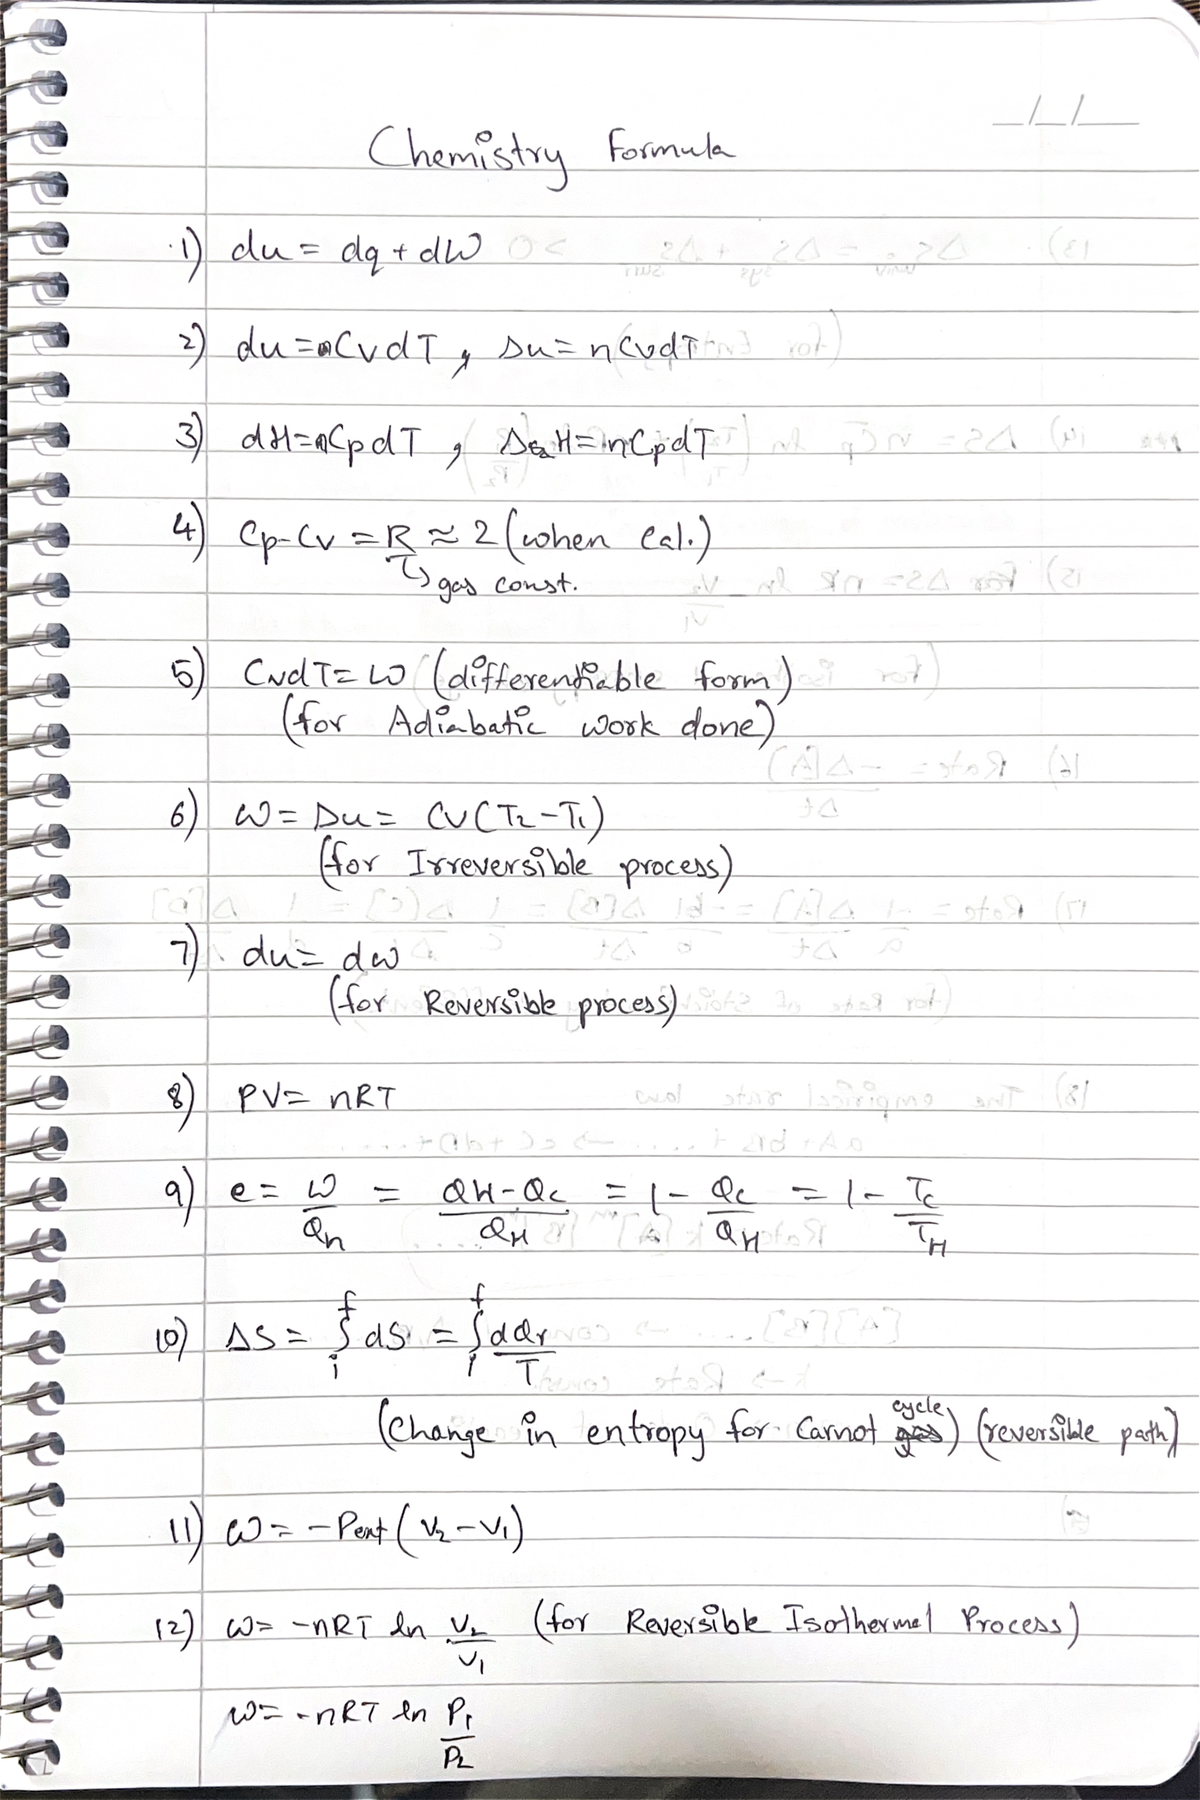 Chemistry Formula
1) du = dq + dW
2) du = nCvdT, Δu = nCvdT
3) dH = nCpdT, ΔH = nCpdT
4) Cp-Cv = R ≈ 2 (when Cal.)
↳ gas const.
5) CvdT = W (differentiable form)
(for Adiabatic work done)
6) W = Δu = Cv(T₂-T₁)
(for Irreversible process)
7) du = dw
(for Reversible process)
8) PV = nRT
9) e = W/Qh = QH-Qc/QH = 1 - Qc/QH = 1 - Tc/TH
10) ΔS = ∫ᵢᶠ dS = ∫ᵢᶠ dQr/T
(Change in entropy for Carnot cycle) (reversible path)
11) W = -Pext (V₂-V₁)
12) W = -nRT ln V₂/V₁ (for Reversible Isothermal Process)
W = -nRT ln P₁/P₂